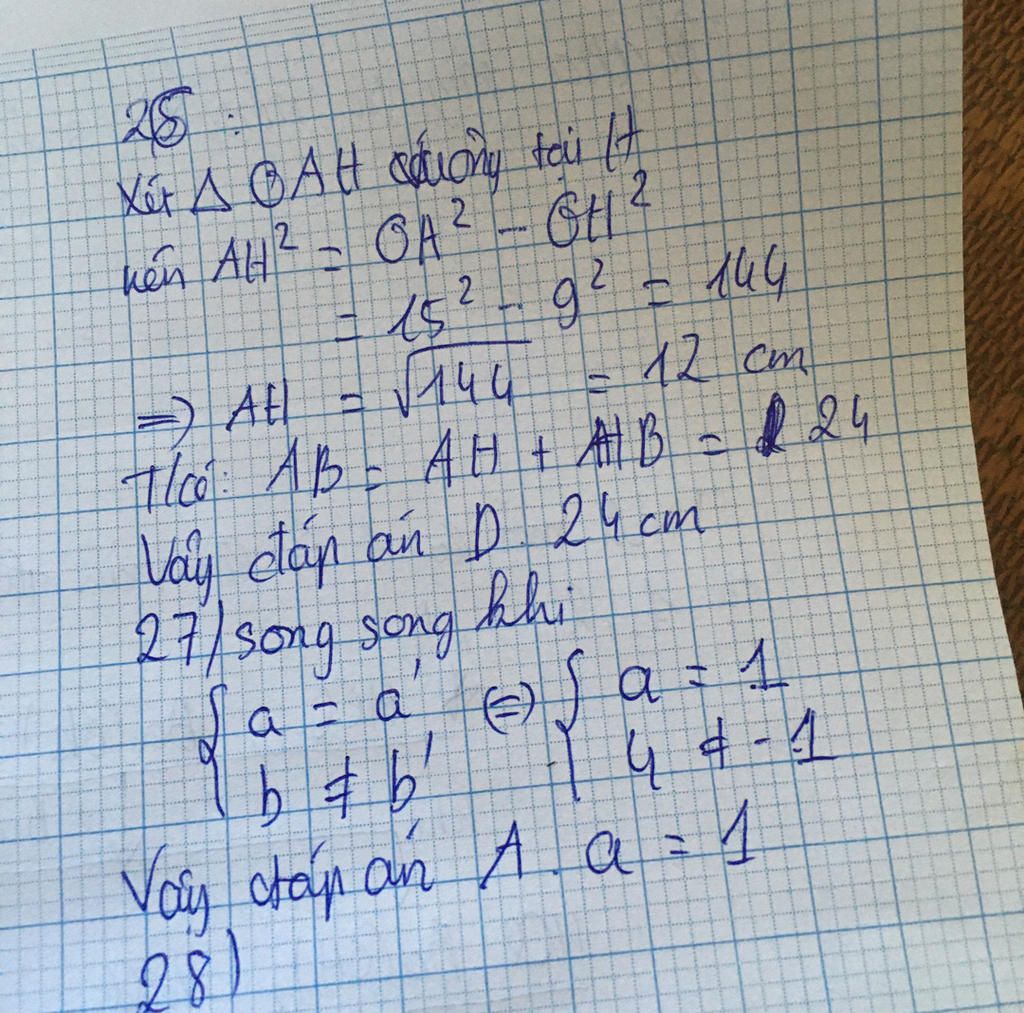 26 :
Xét Δ OAH vuông tại H
nên AH² = OA² - OH²
= 15² - 9² = 144
=> AH = √144 = 12 cm
T/có: AB = AH + HB = 24
Vậy đáp án D. 24 cm
27/ song song khi
{ a = a' <=> { a = 1
b ≠ b' 4 ≠ -1
Vậy đáp án A. a = 1
28)